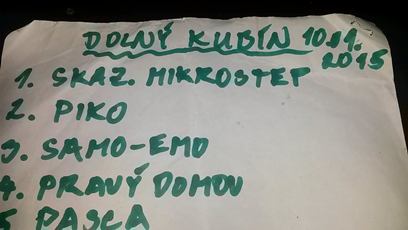 DOLNÝ KUBÍN 10.01.
2015
1. SKAZ. MIKROSTEP
2. PIKO
3. SAMO-EMO
4. PRAVÝ DOMOV
5 PASCA